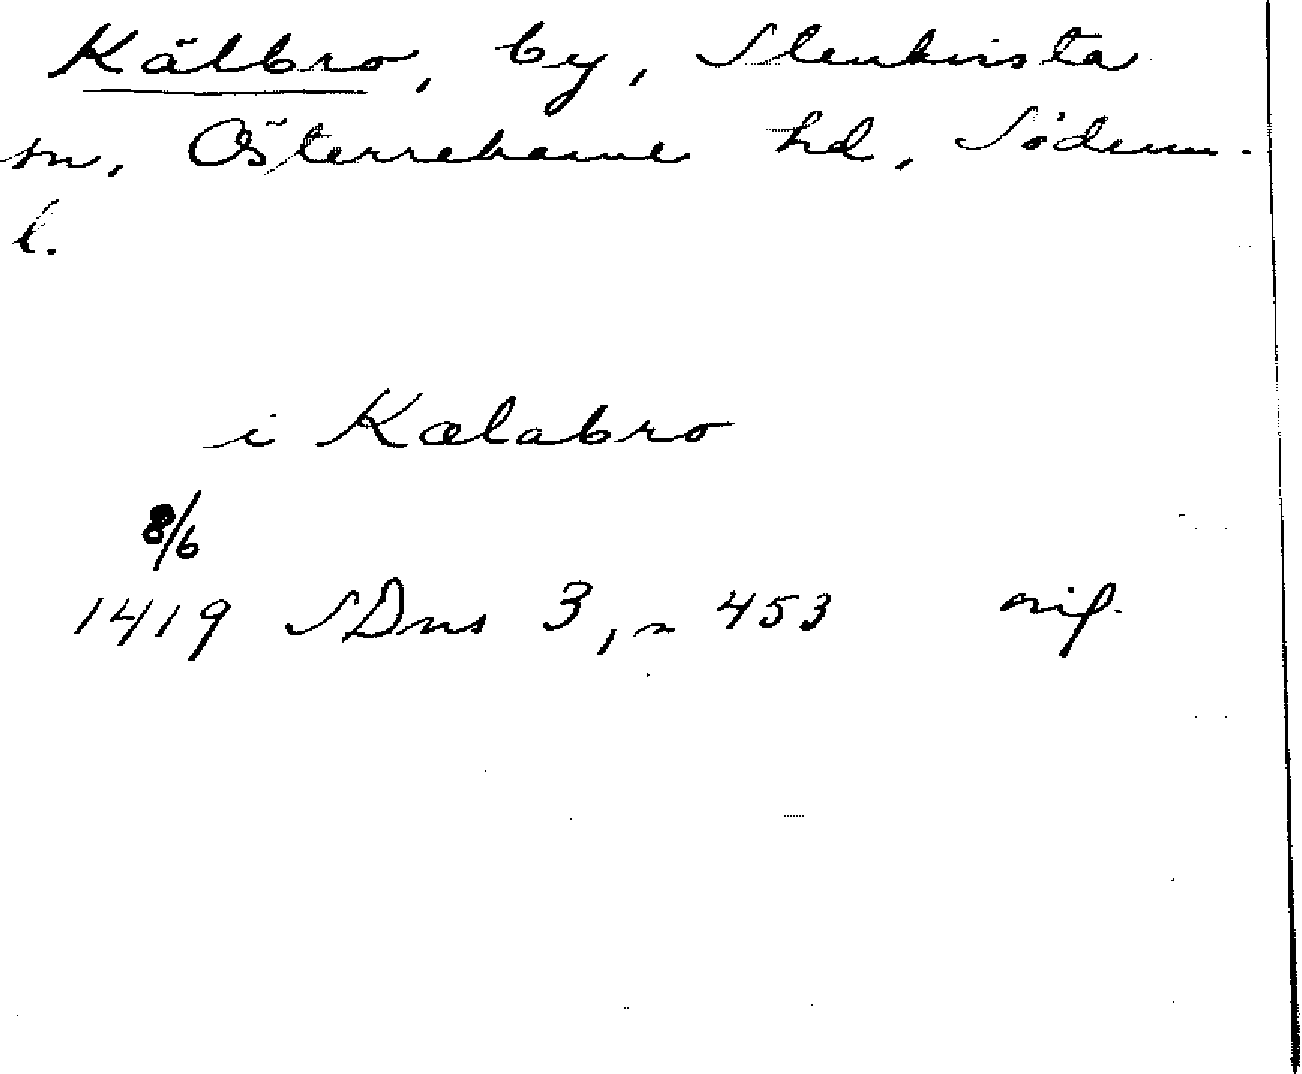 Kälbro, by, Stenkvista
sn, Österrekarne hd, Söderm.
l.
i Kælabro
8/6
1419 SDns 3, s 453 orig.